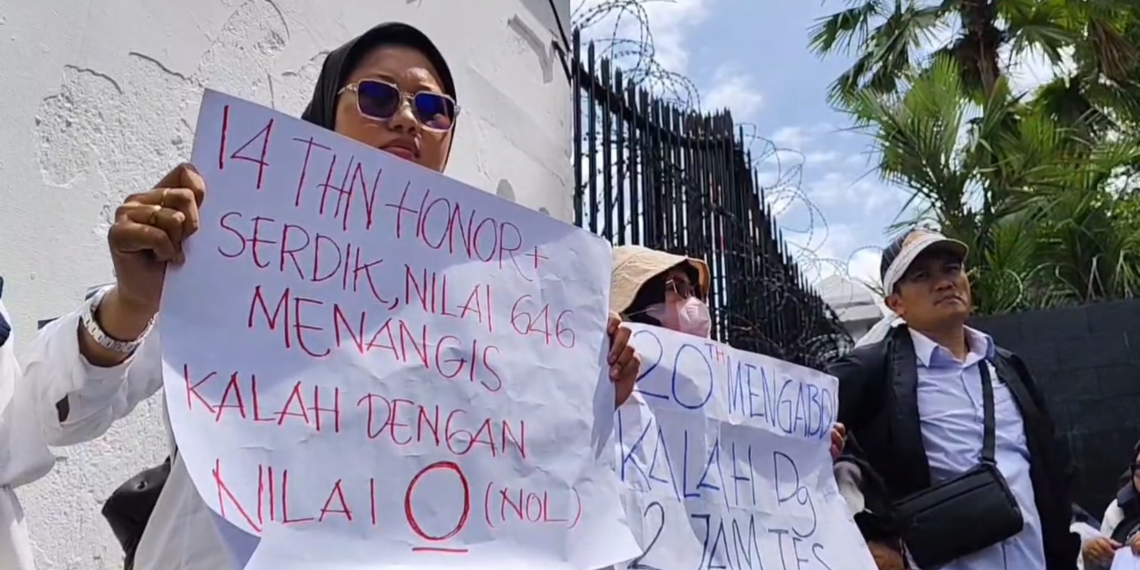 14 THN HONOR +
SERDIK, NILAI 646
MENANGIS
KALAH DENGAN
NILAI 0 (NOL)
20 TH MENGABDI
KALAH Dg
2 JAM TES